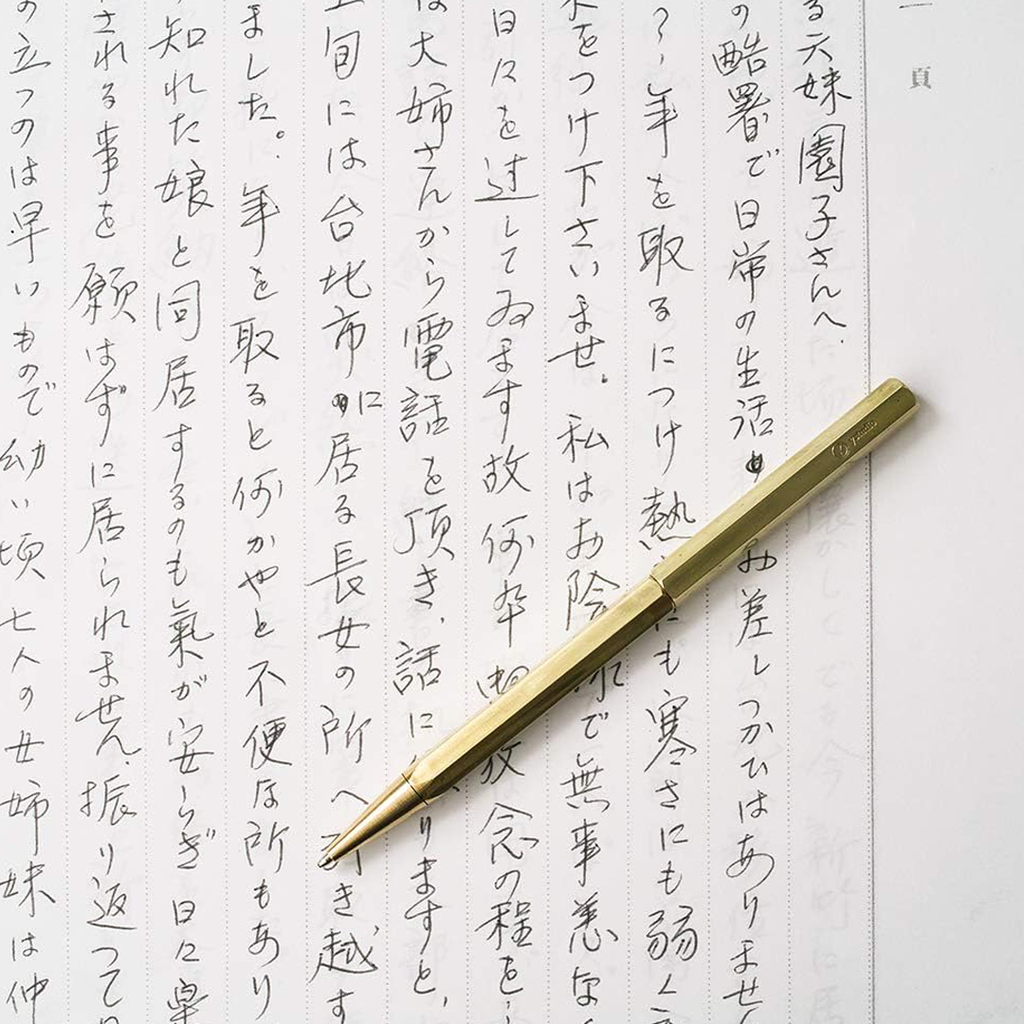 一
頁
る六妹園子さんへ、
の酷暑で日常の生活 お差しつかひはありませ
年を取るにつけ熱 にも寒さにも弱く
をつけ下さいませ。私はお陰 で無事恙な
日々を過してゐます故何卒 放念の程を
大姉さんから電話を頂き、話に りますと、
旬には台北市に居る長女の所へ引き越す
ました。年を取ると何かやと不便な所もあり
知れた娘と同居するのも氣が安らぎ日々
される事を願はずに居られません。振り返つて
の立つのは早いもので幼い頃七人の女姉妹は仲
ystudio